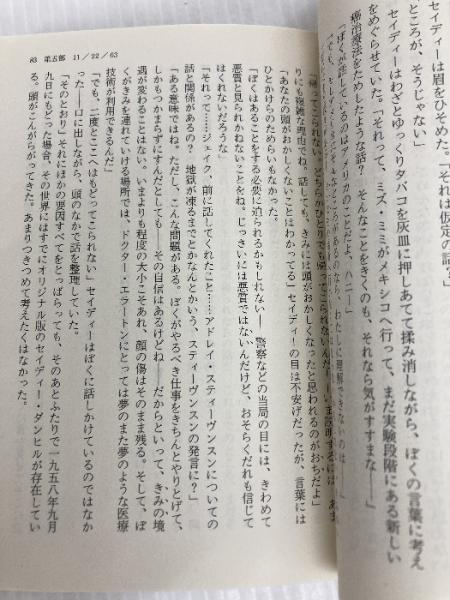 セイディーは眉をひそめた。「それは仮定の話？」
「ところが、そうじゃない」
セイディーはわざとゆっくりタバコを灰皿に押しあてて揉み消しながら、ぼくの言葉に考え
をめぐらせていた。「それって、ミズ・ミミがメキシコへ行って、まだ実験段階にある新しい
癌治療法をためしたような話？　そんなことをきくのも、それなら気がすすまな——」
「ぼくが話しているのはアメリカのことだよ、ハニー」
りにも複雑な理由でね。話しても、きみには頭がおかしくなったと思われるのがおちだよ」
「あなたの頭がおかしくないことはわかってる」セイディーの目は不安げだったが、言葉には
ひとかけらのためらいもなかった。
「ぼくはあることをする必要に迫られるかもしれない——警察などの当局の目には、きわめて
悪質と見られかねないことをね。じっさいには悪質ではないんだけど、おそらくだれも信じて
はくれないだろうな」
「それって……ジェイク、前に話してくれたこと……アドレイ・スティーヴンスンについての
話と関係があるの？　地獄が凍るまでとかなんとかいう、スティーヴンスンの発言に？」
「ある意味ではね。ただし、こんな問題がある。ぼくがやるべき仕事をきちんとやりとげて、
しかもつかまらずにすんだとしても——その自信はあるけど——だからといって、きみの境
遇が変わることはない。いまよりも程度の大小こそあれ、顔の傷はそのまま残る。そして、ぼ
くがきみを連れていける場所では、ドクター・エラートンにとっては夢のまた夢のような医療
技術が利用できるんだ」
「でも、二度とここへはもどってこられない」セイディーはぼくに話しかけているのではなか
った——口に出しながら、頭のなかで話を整理していた。
「そのとおり」それにほかの要因すべてをとっぱらっても、そのあとふたりで一九五八年九月
九日にもどった場合、その世界にはすでにオリジナル版のセイディー・ダンヒルが存在してい
る。頭がこんがらがってきた。あまりつきつめて考えたくはなかった。
83　第五部　11／22／63